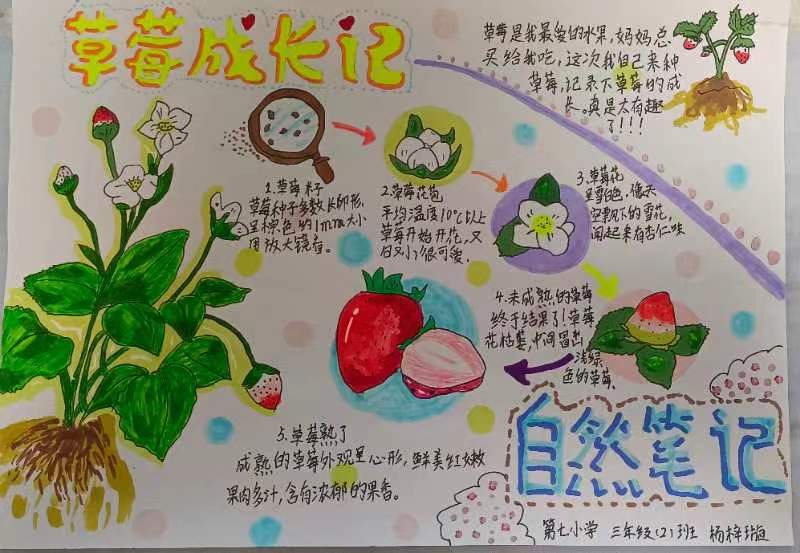 草莓成长记
草莓是我最爱的水果,妈妈总
买给我吃,这次我自己来种
草莓,记录下草莓的成
长。真是太有趣
了!!!
1.草莓籽
草莓种子多数长卵形,
呈棕色,约1mm大小
用放大镜看。
2.草莓花苞
平均温度10℃以上
草莓开始开花,又
白又小,很可爱。
3.草莓花
呈雪白色,像天
空飘下的雪花,
闻起来有杏仁味
4.未成熟的草莓
终于结果了!草莓
花枯萎,中间冒出
浅绿
色的草莓
5.草莓熟了
成熟的草莓外观呈心形,鲜美红嫩
果肉多汁,含有浓郁的果香。
自然笔记
第七小学 三年级(2)班 杨梓